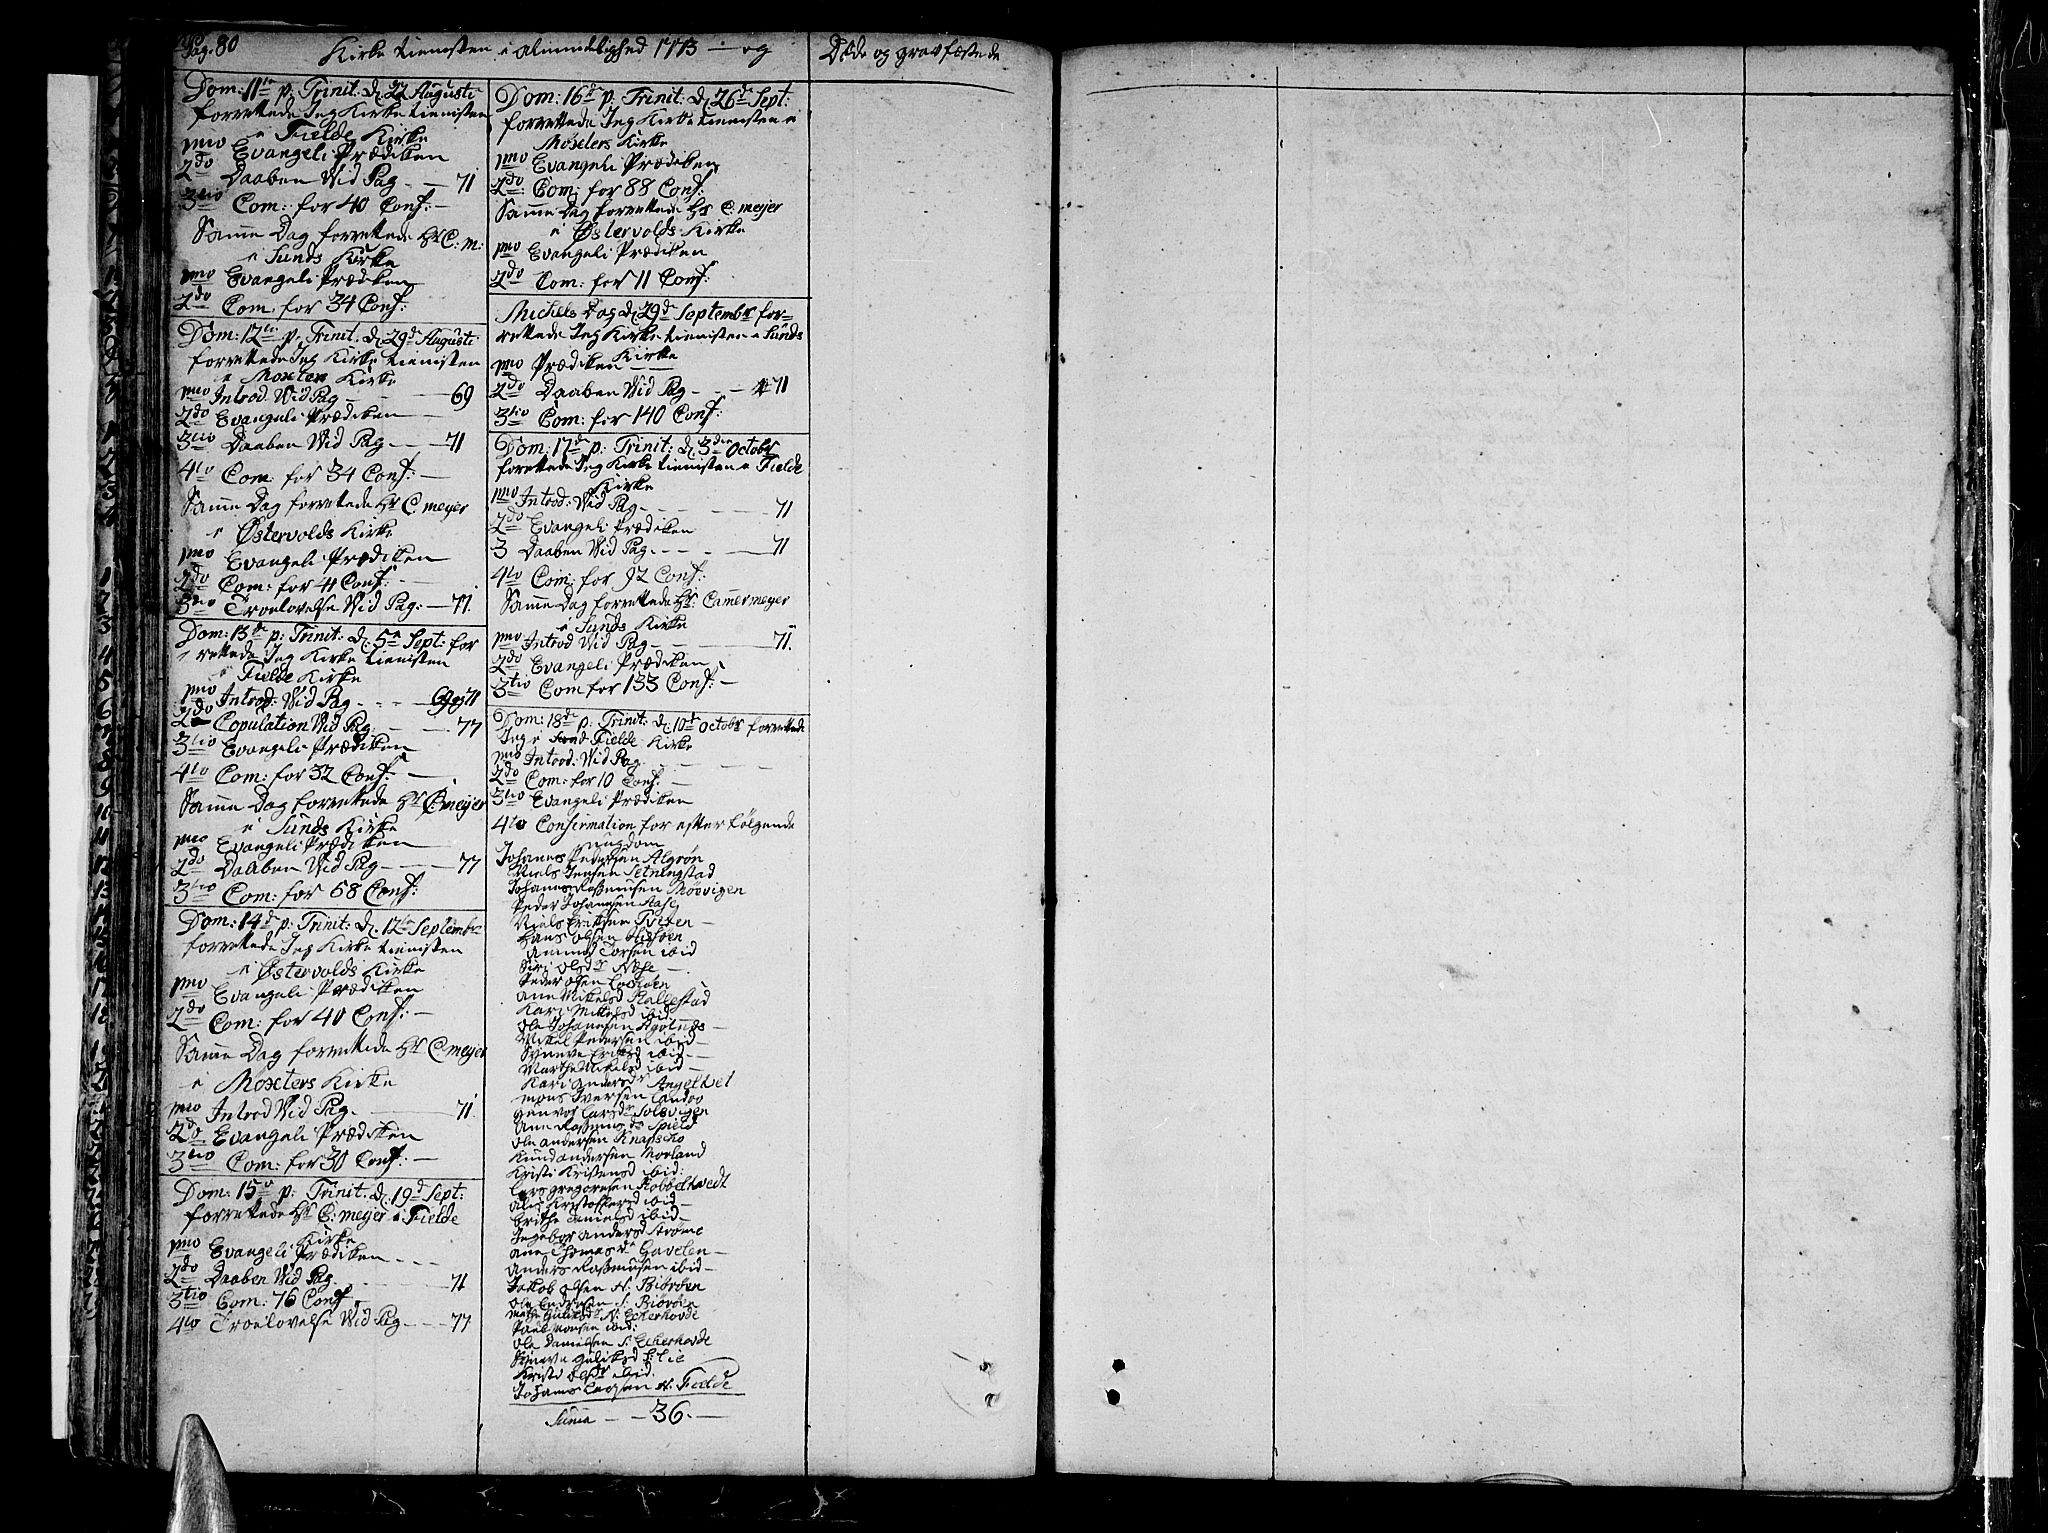 Pag. 80
Kirke tienisten i Almindelighed 1773 - og
Døde og gravfæstede
Dom: 11te p: Trinit: d. 22 Augusti
forrettede Jeg Kirke tienisten
i Fielde Kirke
pmo Evangeli Prædiken
2do Daaben Wid Pag - - 71
3tio Com: for 40 Conf: -
Samme Dag forrettede Hr C: m:
i Sunds Kirke
pmo Evangeli Prædiken
2do Com: for 34 Conf:
Dom: 12te p: Trinit: d. 29d Augusti
forrettede Jeg Kirke tienisten
i Moxters Kirke
pmo Introd: Wid Pag - - 69
2do Evangeli Prædiken
3tio Daaben Wid Pag - - 71
4to Com: for 34 Conf: -
Samme Dag forrettede Hr C: meyer
i Østervolds Kirke
pmo Evangeli Prædiken
2do Com: for 41 Conf: -
3tio Troelovelse Wid Pag: - 71.
Dom: 13de p: Trinit: d. 5te Sept: for
rettede Jeg Kirke tienisten
i Fielde Kirke
pmo Introd: Wid Pag - - - 69 og 71
2do Copulation Wid Pag - - 77
3tio Evangeli Prædiken
4to Com: for 32 Conf: -
Samme Dag forrettede Hr C: meijer
i Sunds Kirke
pmo Evangeli Prædiken
2do Daaben Wid Pag - - 77
3tio Com: for 68 Conf:
Dom: 14de p: Trinit: d. 12te Septembr
forrettede Jeg Kirke tienisten
i Østervolds Kirke
pmo Evangeli Prædiken
2do Com: for 40 Conf: -
Samme Dag forrettede Hr C: meijer
i Moxters Kirke
pmo Introd Wid Pag - - 71
2do Evangeli Prædiken
3tio Com: for 30 Conf: -
Dom: 15de p: Trinit: d. 19d Sept:
forrettede Hr C: meijer i Fielde
Kirke
pmo Evangeli Prædiken - - -
2do Daaben Wid Pag - - 71
3tio Com: 76 Conf -
4to Troelovelse Wid Pag - - - 77
Dom: 16de p: Trinit: d. 26d Sept:
forrettede Jeg Kirke tienisten i
Moxters Kirke
pmo Evangeli Prædiken
2do Com: for 88 Conf:
Samme Dag forrettede Hr C: meijer
i Østervolds Kirke
pmo Evangeli Prædiken
2do Com: for 11 Conf:
Michels Dag d. 29d Septembr for=
rettede Jeg Kirke tienisten i Sunds
Kirke
pmo Prædiken
2do Daaben Wid Pag - - - 71
3tio Com: for 140 Conf:
Dom: 17de p: Trinit: d. 3die Octobr
forrettede Jeg Kirke tienisten i Fielde
Kirke
pmo Introd: Wid Pag - - - 71
2do Evangeli Prædiken
3 Daaben Wid Pag - - - 71
4to Com: for 92 Conf:
Samme Dag forrettede Hr: Camermeyer
i Sunds Kirke
pmo Introd Wid Pag - - 71.
2do Evangeli Prædiken
3tio Com for 133 Conf: -
Dom: 18de p: Trinit: d. 10de Octobr forrettede
Jeg i Fielde Kirke
pmo Introd: Wid Pag - - -
2do Com: for 10 Conf: -
3tio Evangeli Prædiken
4to Confirmation for efter følgende
ungdom
Johanes Pedersen Algrøn
Niels Jensen Setningstad
Johanes Rasmusen Møevigen
Peder Johannesen Aase
Niels Eriksen Tviten -
Hans Olsen
Ammund Torsen ibid
Siri Olsdr Nese -
Peder Olsen
Ane Mikelsd Rallestad
Kari Mikelsd ibid -
Ole Johannesen -
Mikel Pedersen ibid -
Synneve Eriksd ibid -
Marthe Mikelsd ibid -
Kari Andersdr Angeltvet
Mons Iversen Landøo
gunvor Larsdr Solsvigen
Ane Rasmusdr Spield
Ole Andersen Knapsko
Knud andersen Morland
Kristi Kristensd ibid:
Lars gregoriesen Kobbeltvedt
Kristoffersd ibid -
Brithe Danielsd ibid -
Ingebor Andersd Strøme
Ane Thomasdr Gavelen -
Anders Rasmusen ibid -
Jakob Olsen N. Biørøen
Ole S. Biørøen
Marthe Guliksdr N: Eckerhovde
Poul Monsen ibid:
Ole Danielsen S: Eckerhovde
Synneve Guliksd S: Lie
Kristi Olsdr ibid.
Johans Larsen N. Fielde
Suma - - 36. -